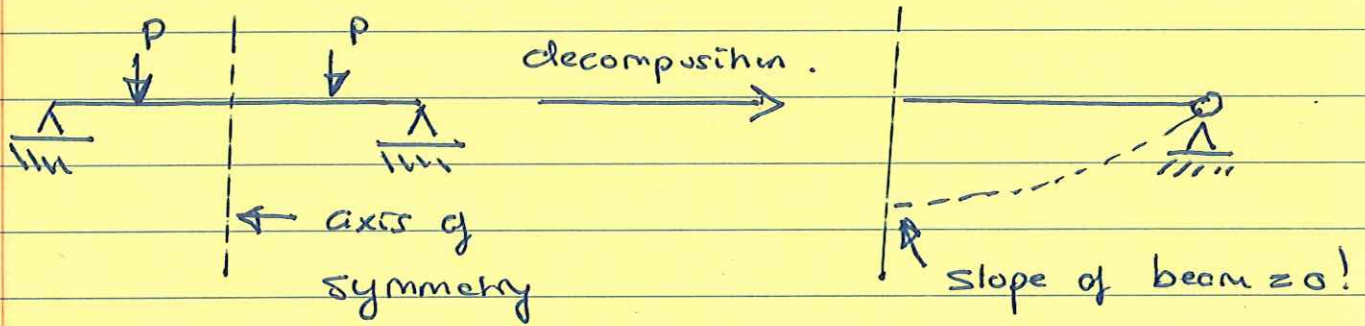 P P
decomposition.
axis of
symmetry
slope of beam = 0!